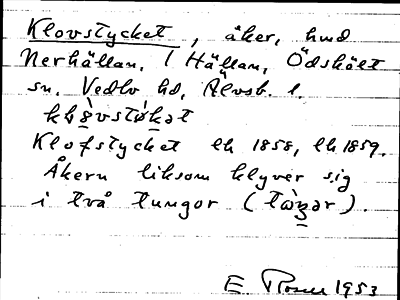 Klovstycket, åker, hmd
Nerhällan, l Hällan, Ödskölt
sn. Vedbo hd, Älvsb. l.
Klofstycket lh 1858, lh 1859.
Åkern liksom klyver sig
i två tungor (
E. 1953